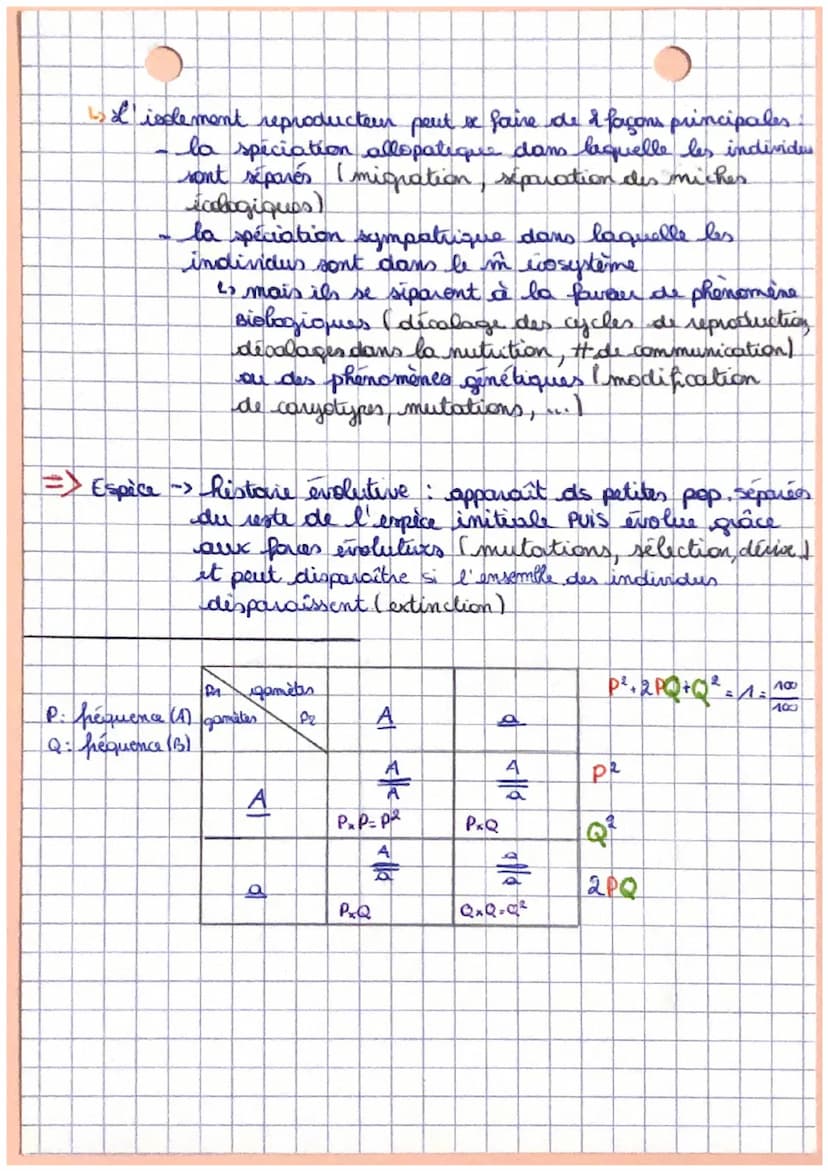 ↳ L'isolement reproducteur peut se faire de 2 façons principales :
- la spéciation allopatique dans laquelle les individus
sont séparés (migration, séparation des niches
écologiques)
- la spéciation sympatrique dans laquelle les
individus sont dans le m̂ écosystème
↳ mais ils se séparent à la faveur de phénomène
Biologiques (décalage des cycles de reproduction,
décalages dans la nutrition, ≠ de communication)
ou des phénomènes génétiques (modification
de caryotypes, mutations, ...)
=> Espèce -> histoire évolutive : apparaît ds petites pop. séparées
du reste de l'espèce initiale PUIS évolue grâce
aux forces évolutives (mutations, sélection, dérive)
et peut disparaître si l'ensemble des individus
disparaissent (extinction)
P²+2PQ+Q² = 1 = 100/100
P1 gamètes
P: fréquence (A) gamètes P2 A a
Q: fréquence (B)
A A/A A/a P²
PxP=P² PxQ Q²
a A/a a/a 2PQ
PxQ QxQ=Q²